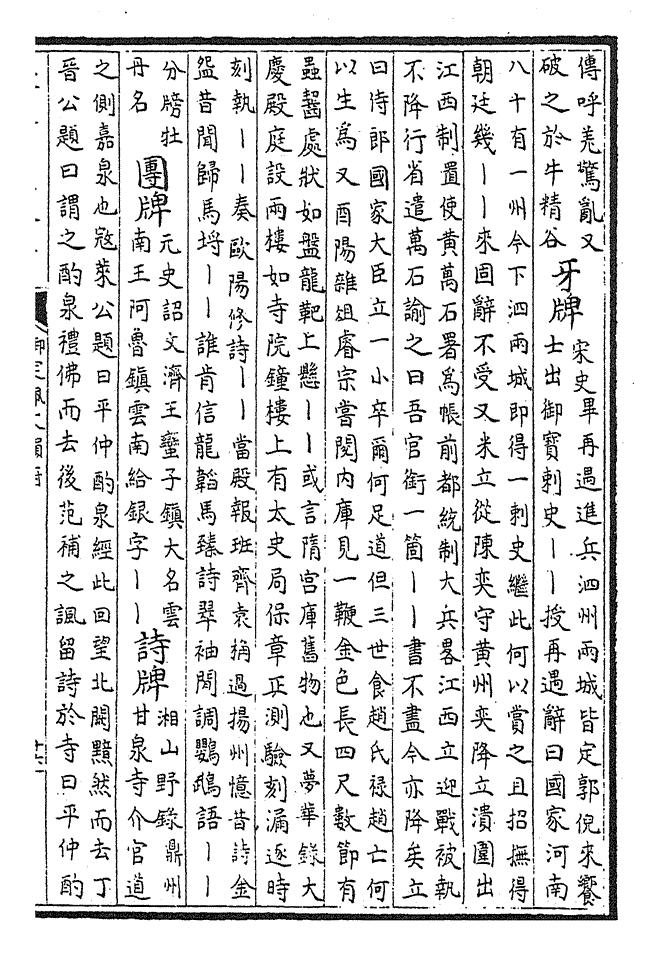 傳呼羌驚亂又
破之於牛精谷
牙牌
宋史畢再遇進兵泗州兩城皆定郭倪來饗
士出御寶刺史丨丨授再遇辭曰國家河南
八十有一州今下泗兩城即得一刺史繼此何以賞之且招撫得
朝廷幾丨丨來固辭不受又米立從陳奕守黄州奕降立潰圍出
江西制置使黄萬石署爲帳前都統制大兵畧江西立迎戰被執
不降行省遣萬石諭之曰吾官銜一箇丨丨書不盡今亦降矣立
曰侍郎國家大臣立一小卒爾何足道但三世食趙氏禄趙亡何
以生爲又酉陽雜俎睿宗嘗閱内庫見一鞭金色長四尺數節有
蟲齧處狀如盤龍靶上懸丨丨或言隋宫庫舊物也又夢華錄大
慶殿庭設兩樓如寺院鐘樓上有太史局保章正測驗刻漏逐時
刻執丨丨奏歐陽修詩丨丨當殿報班齊袁桷過揚州憶昔詩金
盌昔聞歸馬埒丨丨誰肯信龍韜馬臻詩翠袖閒調鸚鵡語丨丨
分牓牡
丹名
團牌
元史詔文濟王蠻子鎮大名雲
南王阿魯鎮雲南給銀字丨丨
詩牌
湘山野錄鼎州
甘泉寺介官道
之側嘉泉也宼萊公題曰平仲酌泉經此回望北闕黯然而去丁
晉公題曰謂之酌泉禮佛而去後范補之諷留詩於寺曰平仲酌